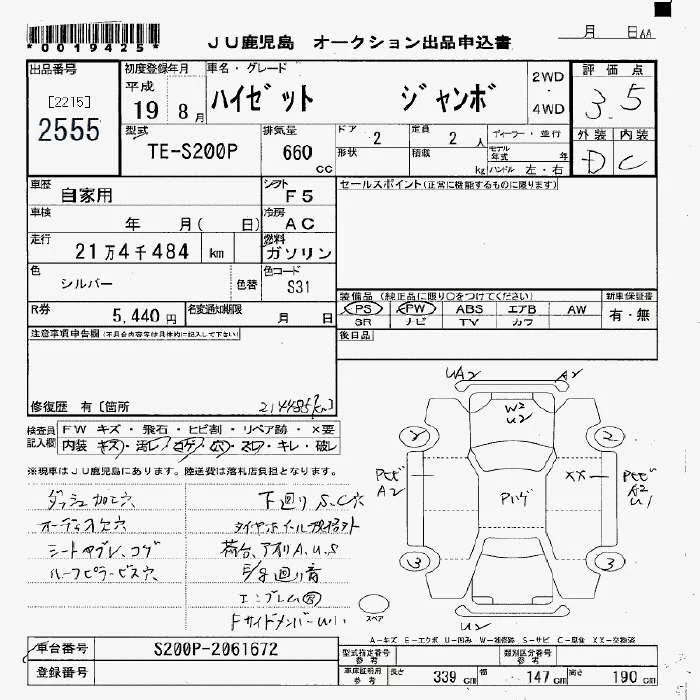 *0019425*
JU鹿児島 オークション出品申込書
月 日
出品番号
[2215]
2555
初度登録年月
平成
19 8月
車名・グレード
ハイゼット ジャンボ
2WD
・
4WD
評価点
3.5
外装 内装
D C
型式
TE-S200P
排気量
660
cc
ドア 2
定員 2 人
ディーラー・並行
形状
積載 kg
モデル年式 年
ハンドル 左・右
車歴
自家用
シフト
F5
セールスポイント(正常に機能するものに限ります)
車検
年 月( 日)
冷房
AC
走行
21万4千484 km
燃料
ガソリン
色
シルバー
色替
色コード
S31
装備品 (純正品に限り○をつけてください)
新車保証書
PS PW ABS エアB AW
有・無
SR ナビ TV カワ
R券
5,440 円
名変通知期限
月 日
後日品
注意事項申告欄(不具合内容等は具体的に記入して下さい)
修復歴 有〔箇所
214485km〕
検査員記入欄
FW キズ・飛石・ヒビ割・リペア跡・×要
内装 キズ・汚レ・コゲ・穴・スレ・キレ・破レ
※現車はJU鹿児島にあります。陸送費は落札店負担となります。
ダッシュ加工穴
オーディオ欠穴
シートヤブレ、コゲ
ハーフピラービス穴
下廻りS、C穴
荷台、アオリA、U、S
エンブレム
FサイドメンバーU
UA2
A2
W2
U2
2
2
A2
XX
A2
U1
3
3
U2
スペア
A-キズ E-エクボ U-凹み W-補修跡 S-サビ C-腐食 XX-交換済
車台番号
S200P-2061672
登録番号
型式指定番号
参考
類別区分番号
参考
車庫証明用
参考
長さ 339 cm
幅 147 cm
高さ 190 cm